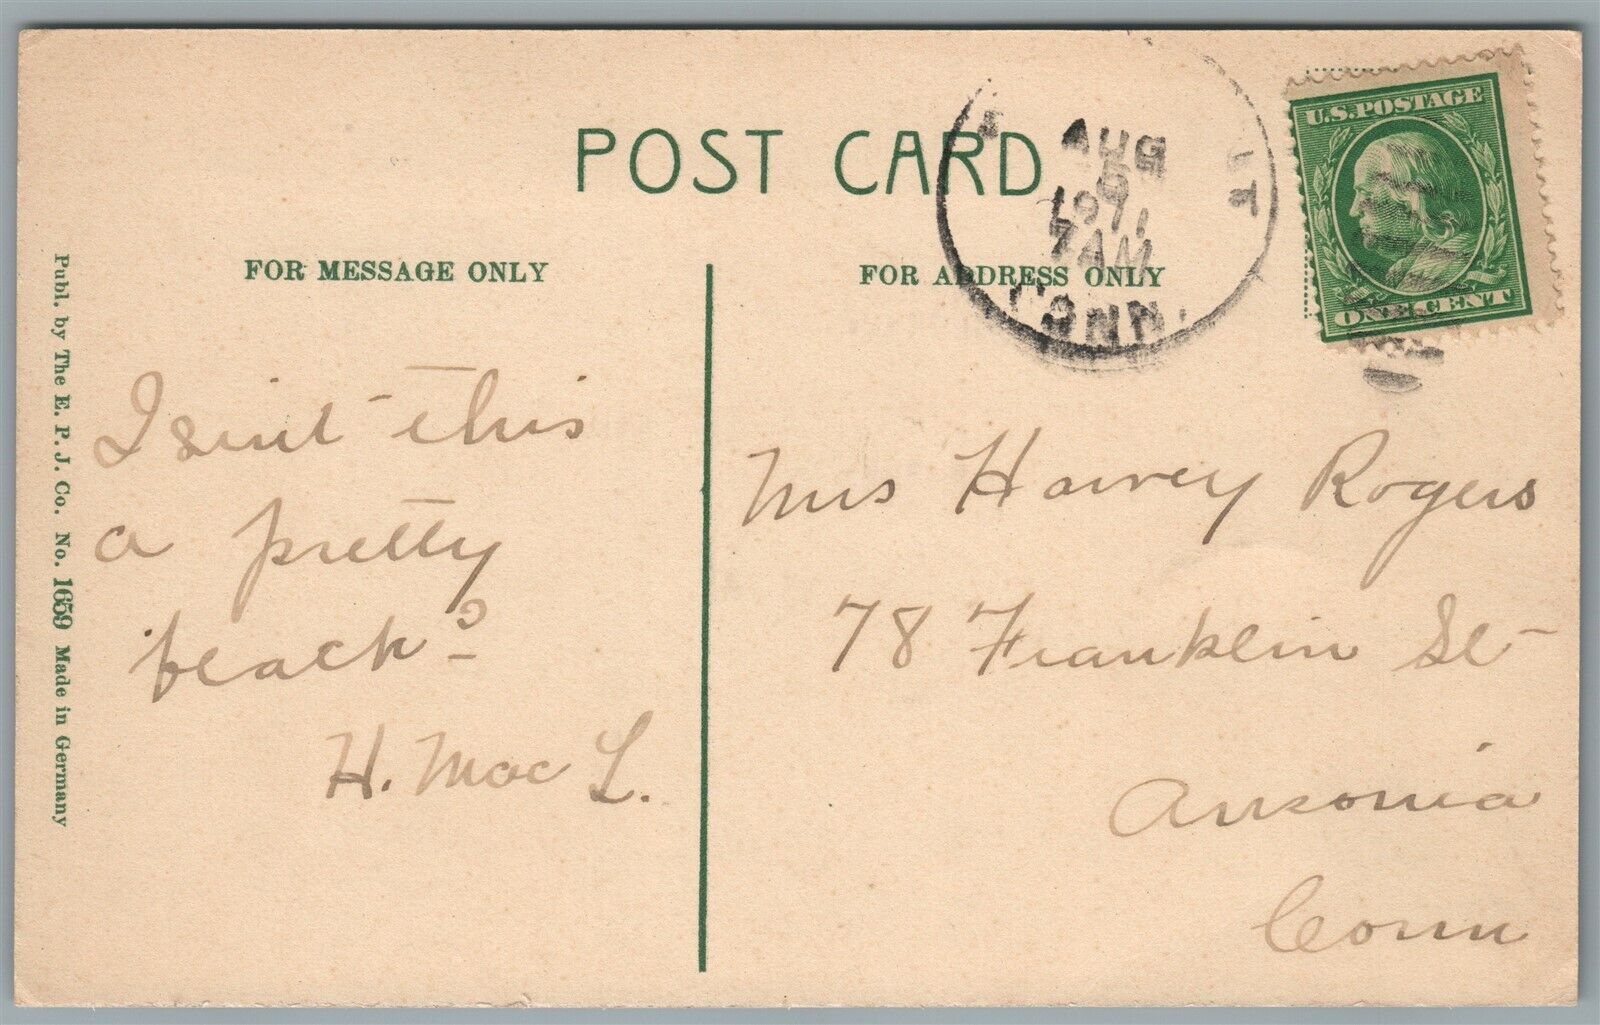 POST CARD
FOR MESSAGE ONLY
FOR ADDRESS ONLY
AUG
1911
7 AM
CONN.
U.S. POSTAGE
ONE CENT
Publ. by The E. P. J. Co. No. 1659 Made in Germany
Isint this
a pretty
beach?
H. Mac L.
Mrs Harvey Rogers
78 Franklin St
Ansonia
Conn